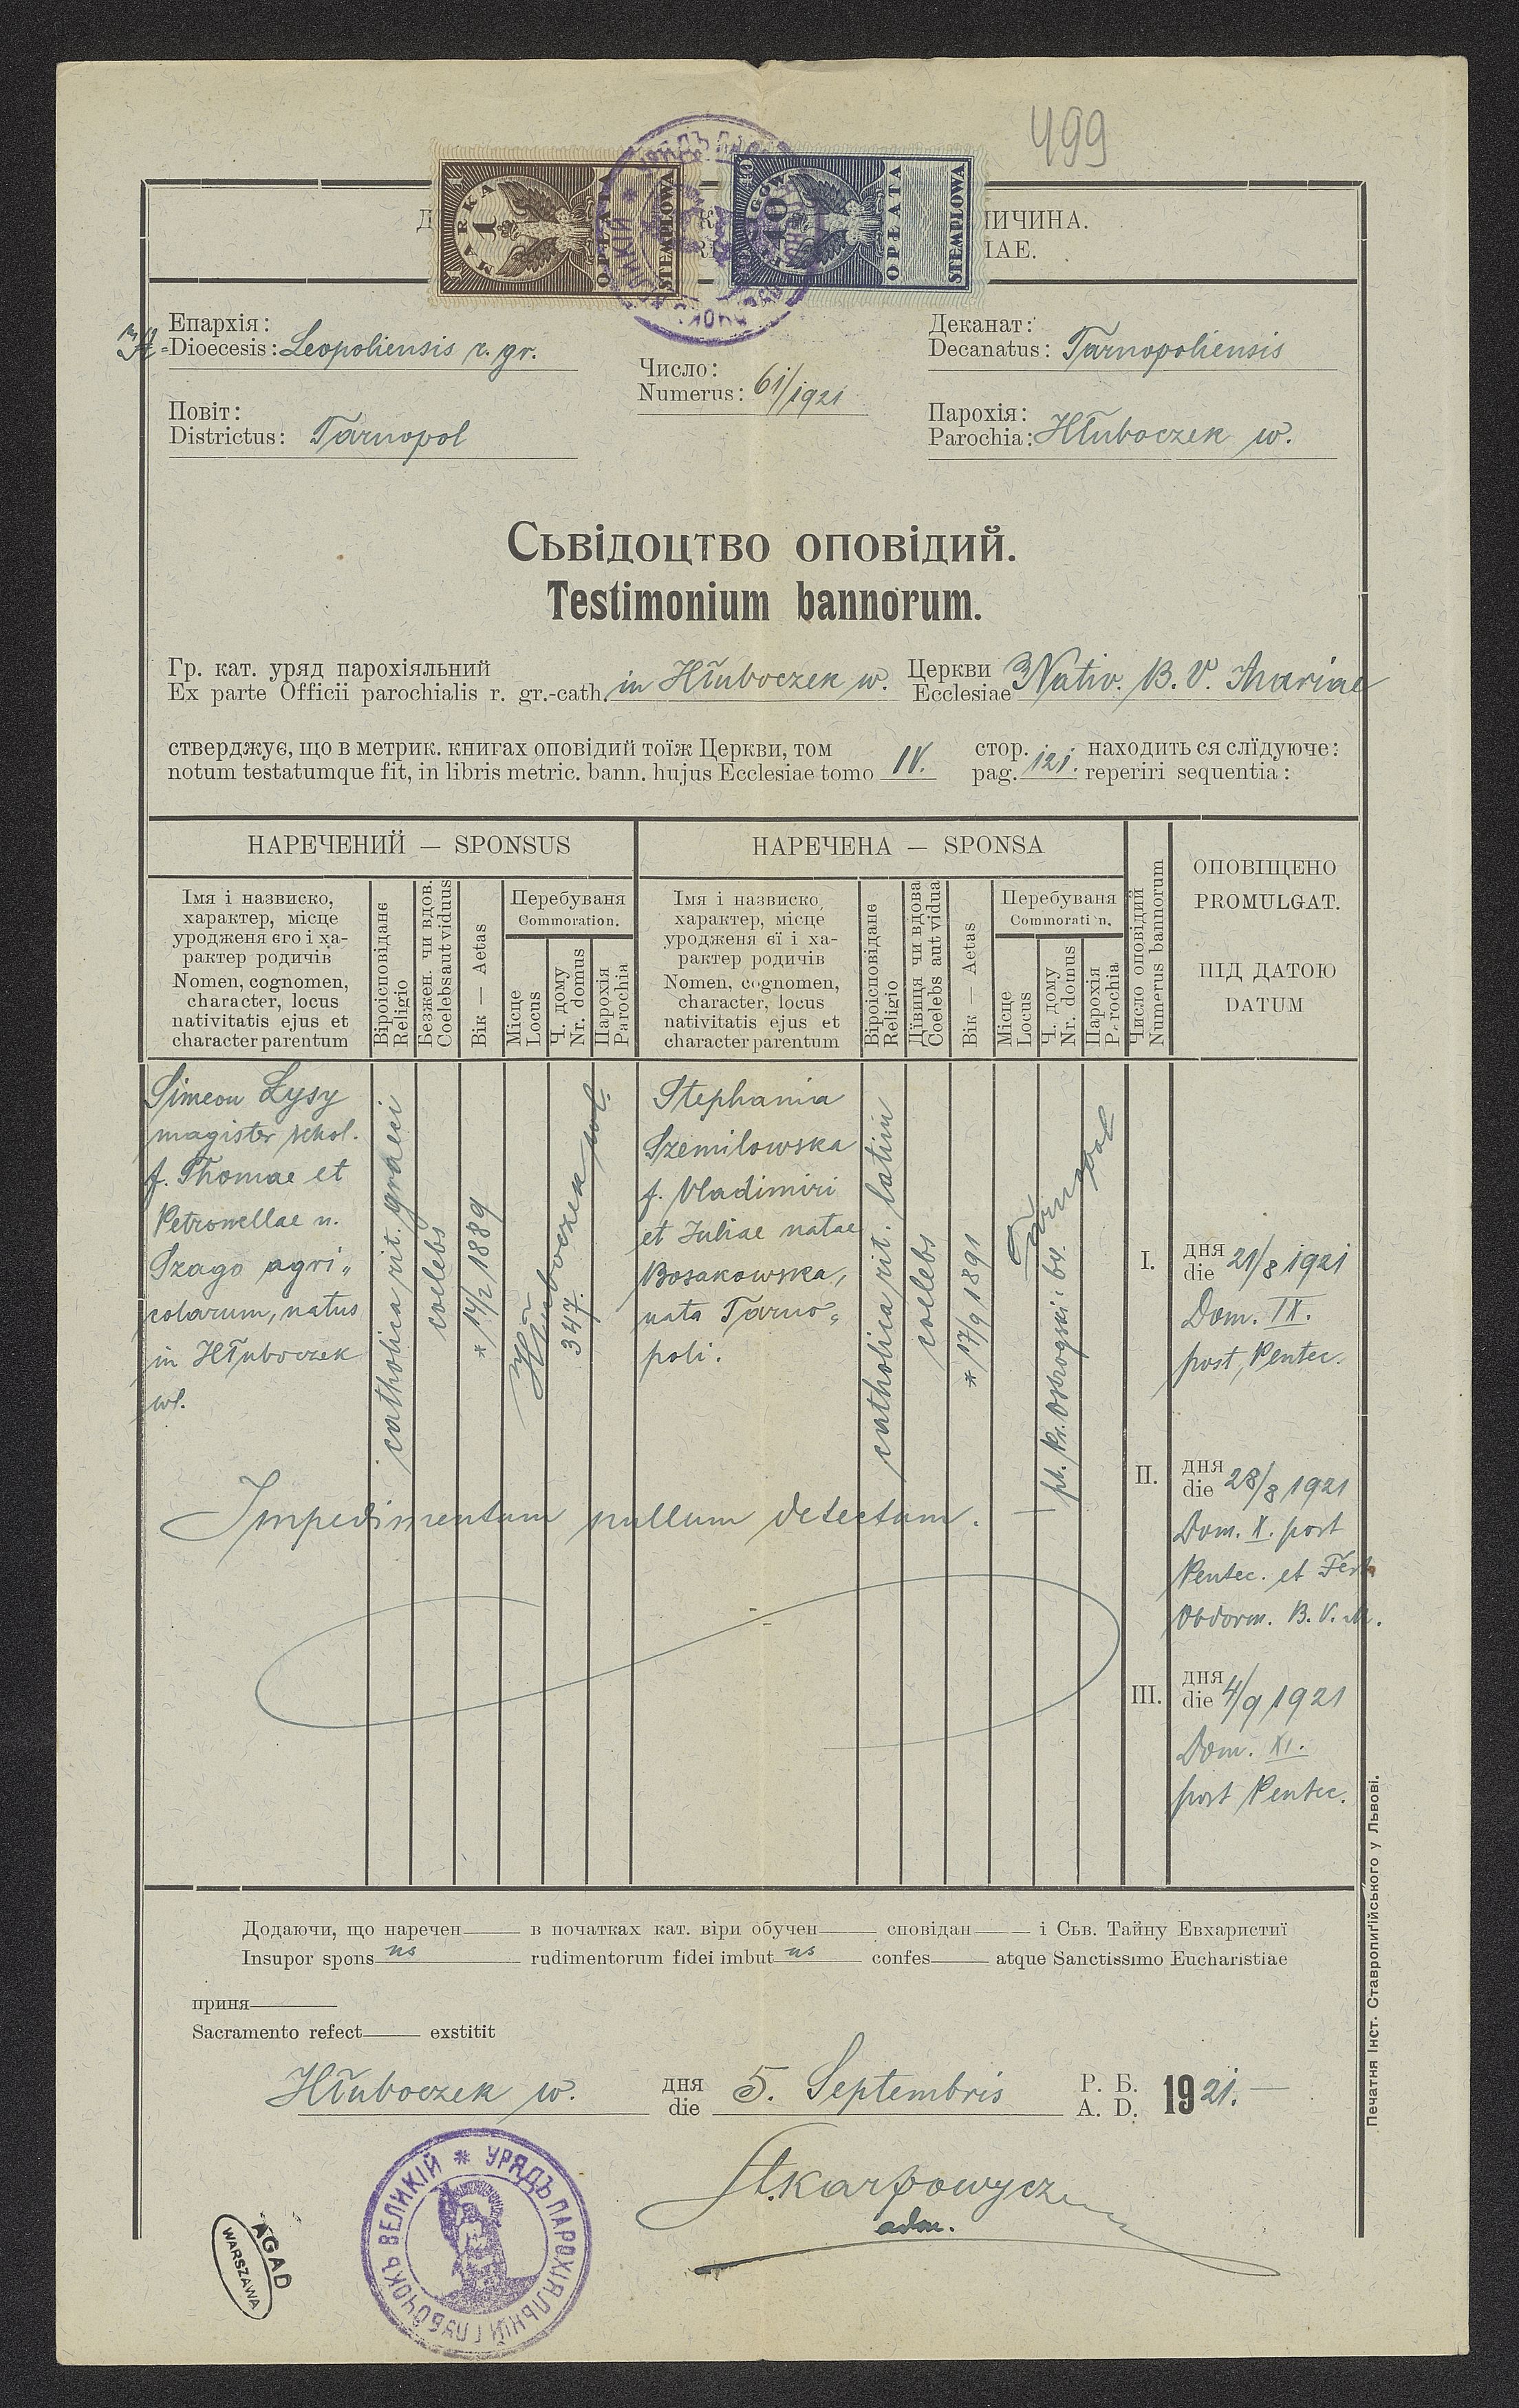 499
MARKA
1
OPŁATA
STEMPLOWA
10
OPŁATA
STEMPLOWA
Епархія:
Dioecesis: Leopoliensis r. gr.
Деканат:
Decanatus: Tarnopoliensis
Число:
Numerus: 61/1921
Повіт:
Districtus: Tarnopol
Парохія:
Parochia: Hłuboczek w.
Сьвідоцтво оповідий.
Testimonium bannorum.
Гр. кат. уряд парохіяльний Церкви
Ex parte Officii parochialis r. gr.-cath. in Hłuboczek w. Ecclesiae Nativ. B. V. Mariae
стверджує, що в метрик. книгах оповідий тоїж Церкви, том стор. находить ся слїдуюче:
notum testatumque fit, in libris metric. bann. hujus Ecclesiae tomo IV. pag. 121. reperiri sequentia:
НАРЕЧЕНИЙ — SPONSUS
НАРЕЧЕНА — SPONSA
Число оповідий
Numerus bannorum
ОПОВІЩЕНО
PROMULGAT.
ПІД ДАТОЮ
DATUM
Імя і назвиско,
характер, місце
уродженя єго і ха-
рактер родичів
Nomen, cognomen,
character, locus
nativitatis ejus et
character parentum
Віроісповіданє
Religio
Безжен. чи вдов.
Coelebs aut viduus
Вік — Aetas
Перебуваня
Commoration.
Місце
Locus
Ч. дому
Nr. domus
Парохія
Parochia
Імя і назвиско,
характер, місце
уродженя єї і ха-
рактер родичів
Nomen, cognomen,
character, locus
nativitatis ejus et
character parentum
Віроісповіданє
Religio
Дівиця чи вдова
Coelebs aut vidua
Вік — Aetas
Перебуваня
Commorati n.
Місце
Locus
Ч. дому
Nr. domus
Парохія
P rochia
Simeon Łysy
magister schol.
f. Thomae et
Petronellae n.
Szago agri„
colarum, natus
in Hłuboczek
wl.
catholica rit. graeci
coelebs
* 14/2 1889
Hłuboczek wl.
347.
Stephania
Szemilowska
f. Vladimiri
et Juliae natae
Bosakowska,
nata Tarno„
poli.
catholica rit. latini
coelebs
* 17/9 1891
Tarnopol
I. дня
die 21/8 1921
Dom. IX.
post Pentec.
II. дня
die 28/8 1921
Dom. X. post
Pentec. et Fest
Obdorm. B. V. M.
III. дня
die 4/9 1921
Dom. XI.
post Pentec.
Impedimentum nullum detectum. —
Додаючи, що наречен в початках кат. віри обучен сповідан і Сьв. Тайну Евхаристиї
Insupor spons us rudimentorum fidei imbut us confes atque Sanctissimo Eucharistiae
приня
Sacramento refect exstitit
Hłuboczek w. дня
die 5. Septembris Р. Б.
A. D. 1921.—
St. Karpowycz
adm.
УРЯДЪ ПАРОХІЯЛЬНІЙ ГЛУБОЧОКЪ ВЕЛИКІЙ
AGAD
WARSZAWA
Печатня Інст. Ставропигійського у Львові.